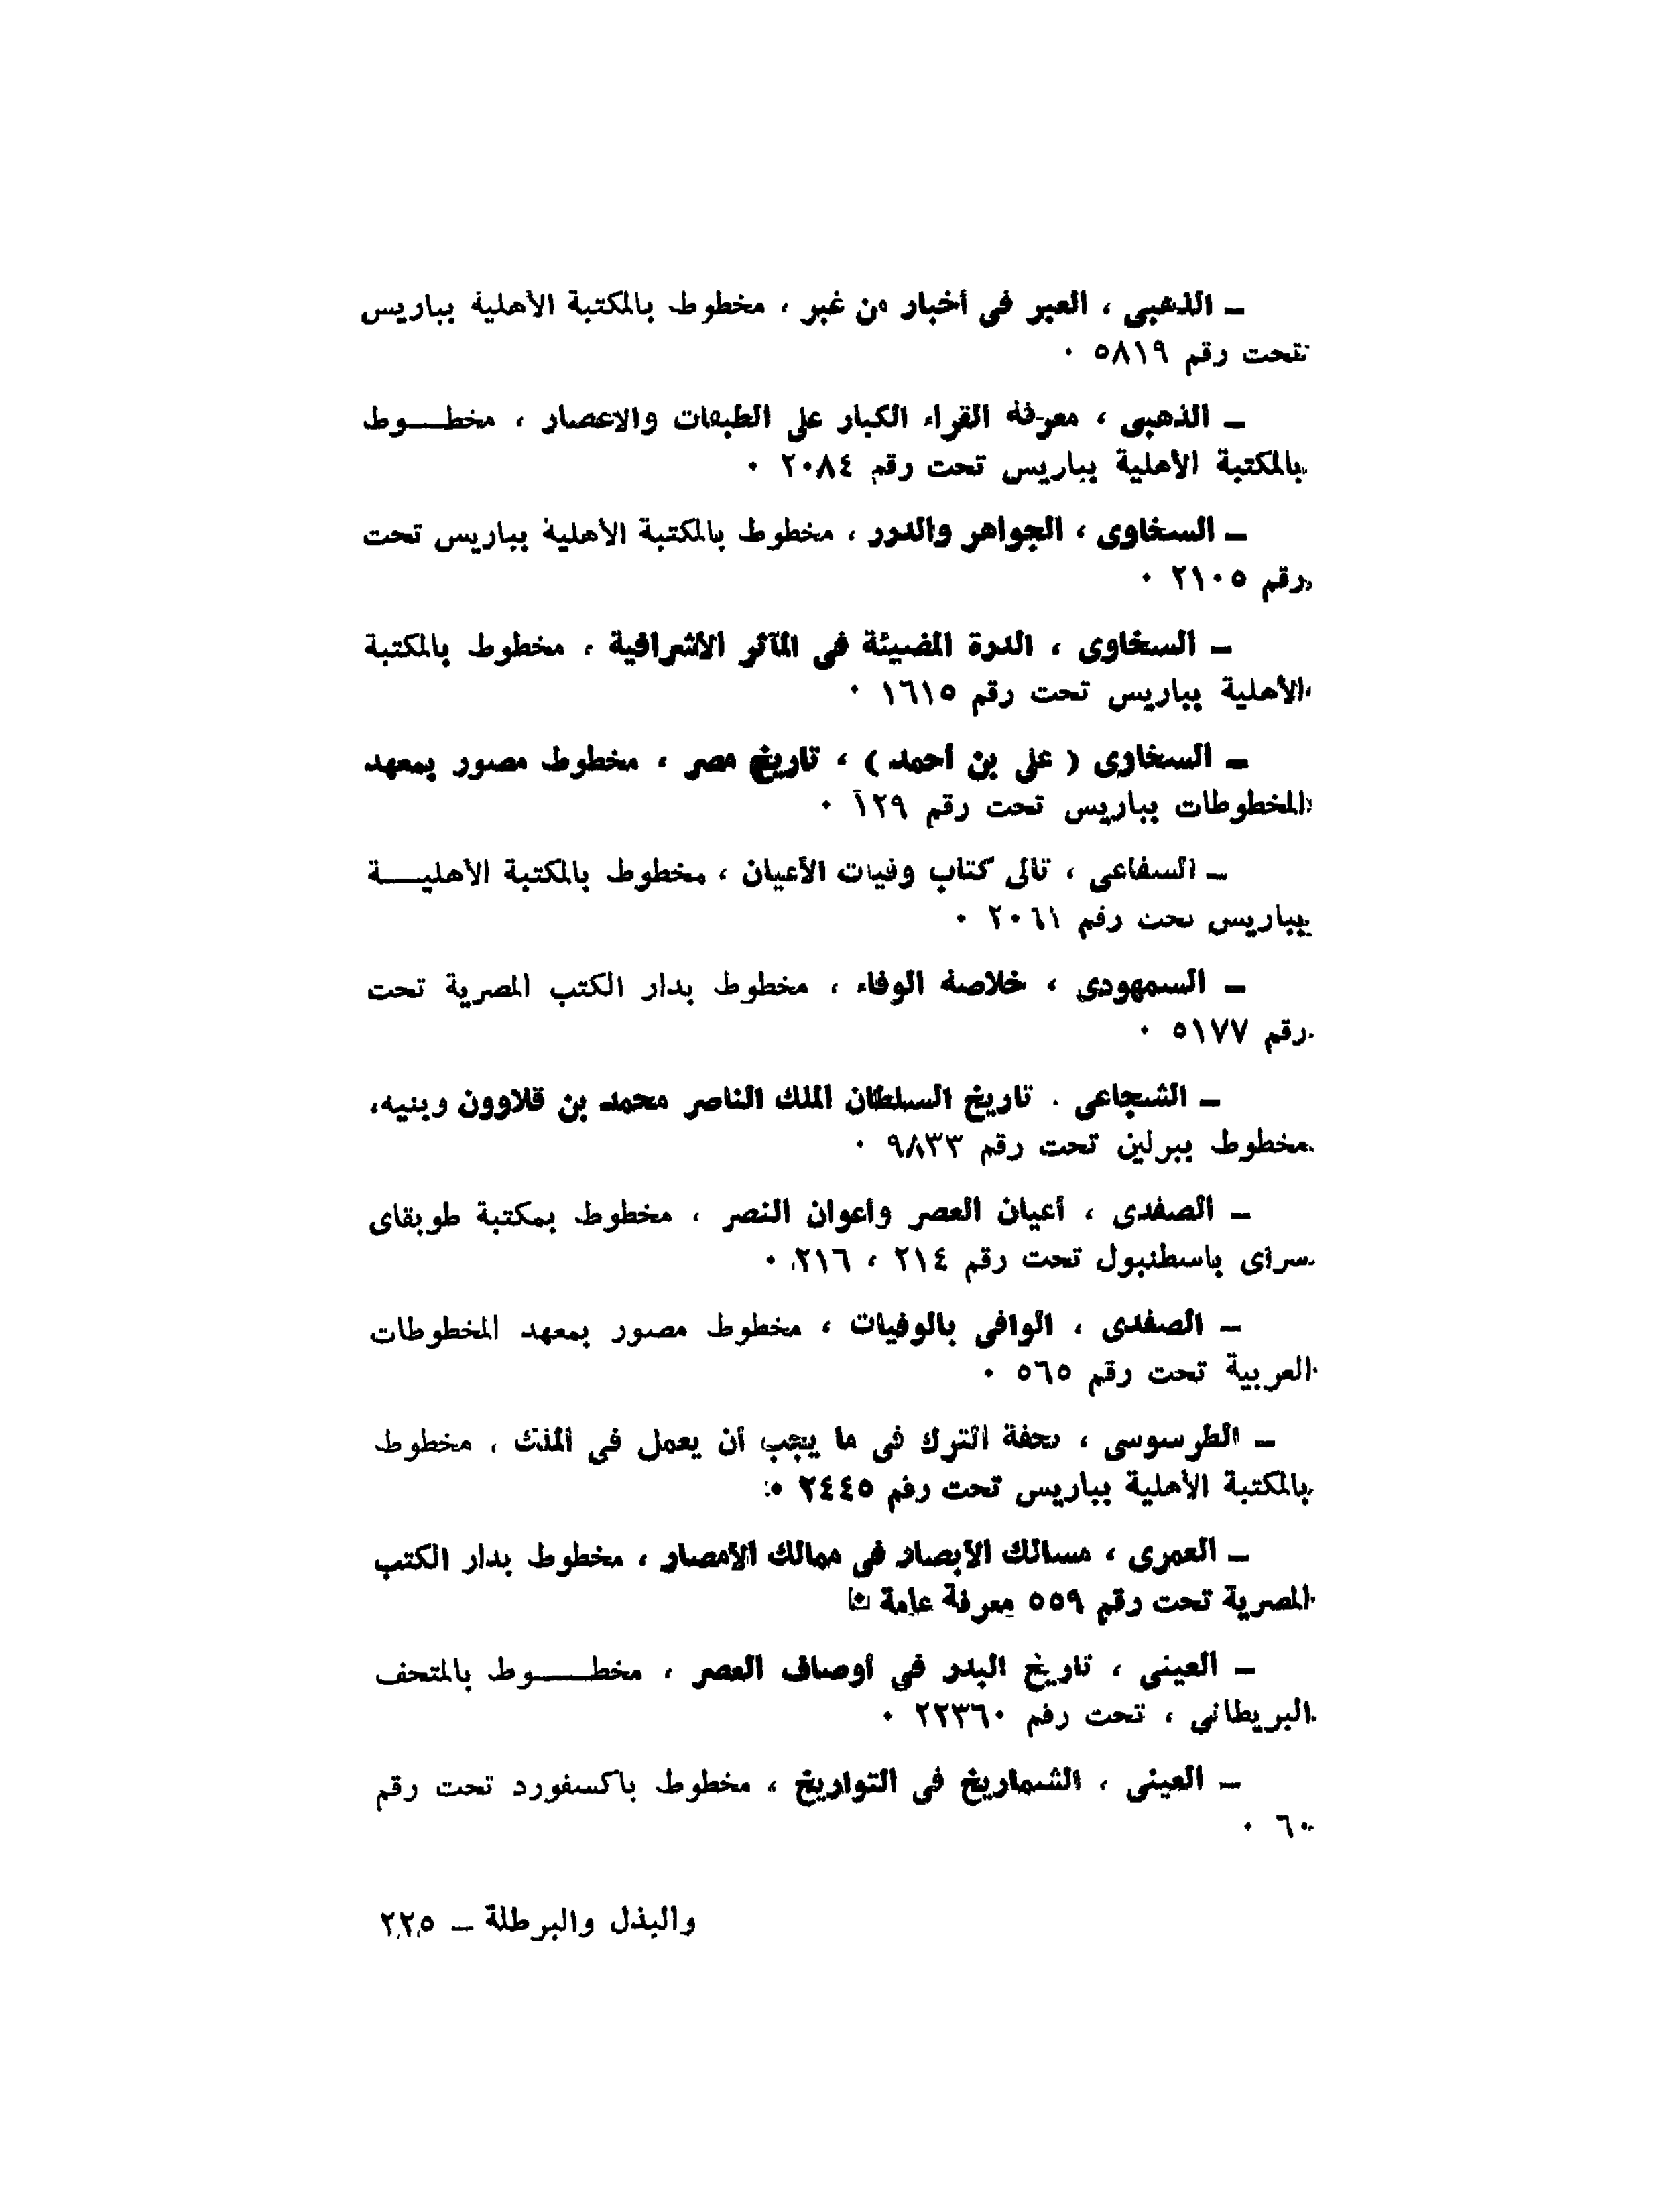 ـ الذهبى ، العبر فى أخبار من غبر ، مخطوط بالمكتبة الأهلية بباريس
تحت رقم ٥٨١٩ ٠
ـ الذهبى ، معرفة القراء الكبار على الطبقات والاعصار ، مخطـــوط
بالمكتبة الأهلية بباريس تحت رقم ٢٠٨٤ ٠
ـ السخاوى ، الجواهر والدرر ، مخطوط بالمكتبة الأهلية بباريس تحت
رقم ٢١٠٥ ٠
ـ السخاوى ، الدرة المضيئة فى المآثر الأشرافية ، مخطوط بالمكتبة
الأهلية بباريس تحت رقم ١٦١٥ ٠
ـ السخاوى ( على بن أحمد ) ، تاريخ مصر ، مخطوط مصور بمعهد
المخطوطات بباريس تحت رقم ١٢٩ ٠
ـ السقاعى ، تالى كتاب وفيات الأعيان ، مخطوط بالمكتبة الأهليـــة
بباريس تحت رقم ٢٠٦١ ٠
ـ السمهودى ، خلاصة الوفاء ، مخطوط بدار الكتب المصرية تحت
رقم ٥١٧٧ ٠
ـ الشجاعى . تاريخ السلطان الملك الناصر محمد بن قلاوون وبنيه،
مخطوط ببرلين تحت رقم ٩٨٣٣ ٠
ـ الصفدى ، أعيان العصر وأعوان النصر ، مخطوط بمكتبة طوبقاى
سراى باسطنبول تحت رقم ٢١٤ ، ٢١٦ ٠
ـ الصفدى ، الوافى بالوفيات ، مخطوط مصور بمعهد المخطوطات
العربية تحت رقم ٥٦٥ ٠
ـ الطرسوسى ، تحفة الترك فى ما يجب أن يعمل فى الملك ، مخطوط
بالمكتبة الأهلية بباريس تحت رقم ٢٤٤٥ ٠
ـ العمرى ، مسالك الأبصار فى ممالك الأمصار ، مخطوط بدار الكتب
المصرية تحت رقم ٥٥٩ معرفة عامة ٠
ـ العينى ، تاريخ البدر فى أوصاف العصر ، مخطـــوط بالمتحف
البريطانى ، تحت رقم ٢٢٣٦٠ ٠
ـ العينى ، الشماريخ فى التواريخ ، مخطوط باكسفورد تحت رقم
٦٠ ٠
والبذل والبرطلة ـ ٢٢٥